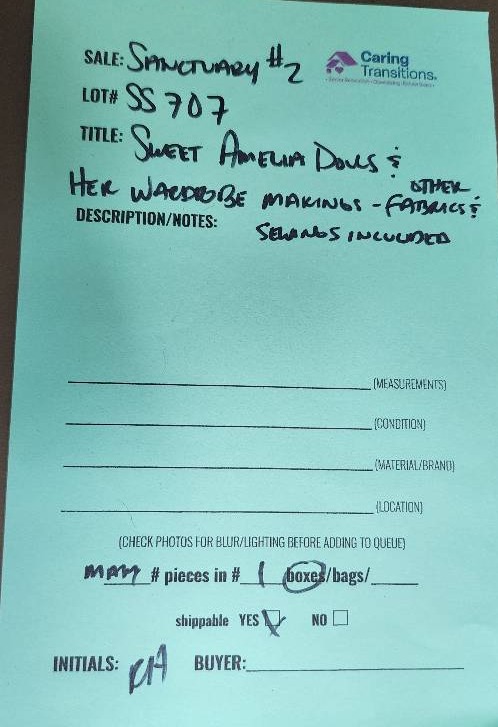 SALE: SANCTUARY #2
Caring
Transitions.
LOT# SS 707
TITLE: SWEET AMELIA DOLLS &
HER WARDROBE MAKINGS - OTHER FABRICS &
DESCRIPTION/NOTES:
INCLUDED
(MEASUREMENTS)
(CONDITION)
(MATERIAL/BRAND)
(LOCATION)
(CHECK PHOTOS FOR BLUR/LIGHTING BEFORE ADDING TO QUEUE)
MANY # pieces in # 1 boxes/bags/
shippable YES NO
INITIALS: BUYER: